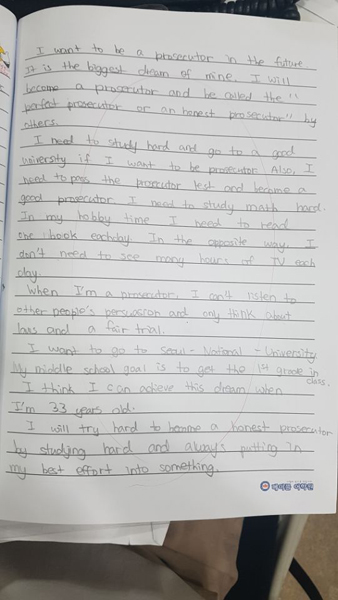 I want to be a prosecutor in the future
It is the biggest dream of mine. I will
become a prosecutor and be called the "
perfect prosecutor or an honest prosecutor" by
others.
I need to study hard and go to a good
university if I want to be prosecutor. Also, I
need to pass the prosecutor test and become a
good prosecutor. I need to study math hard.
In my hobby time, I need to read
one book each day. In the opposite way, I
don't need to see many hours of TV each
day.
When I'm a prosecutor, I can't listen to
other people's persuasion and only think about
laws and a fair trial.
I want to go to Seoul - National - University
My middle school goal is to get the 1st grade in
class.
I think I can achieve this dream when
I'm 33 years old.
I will try hard to become a honest prosecutor
by studying hard and always putting in
my best effort into something.